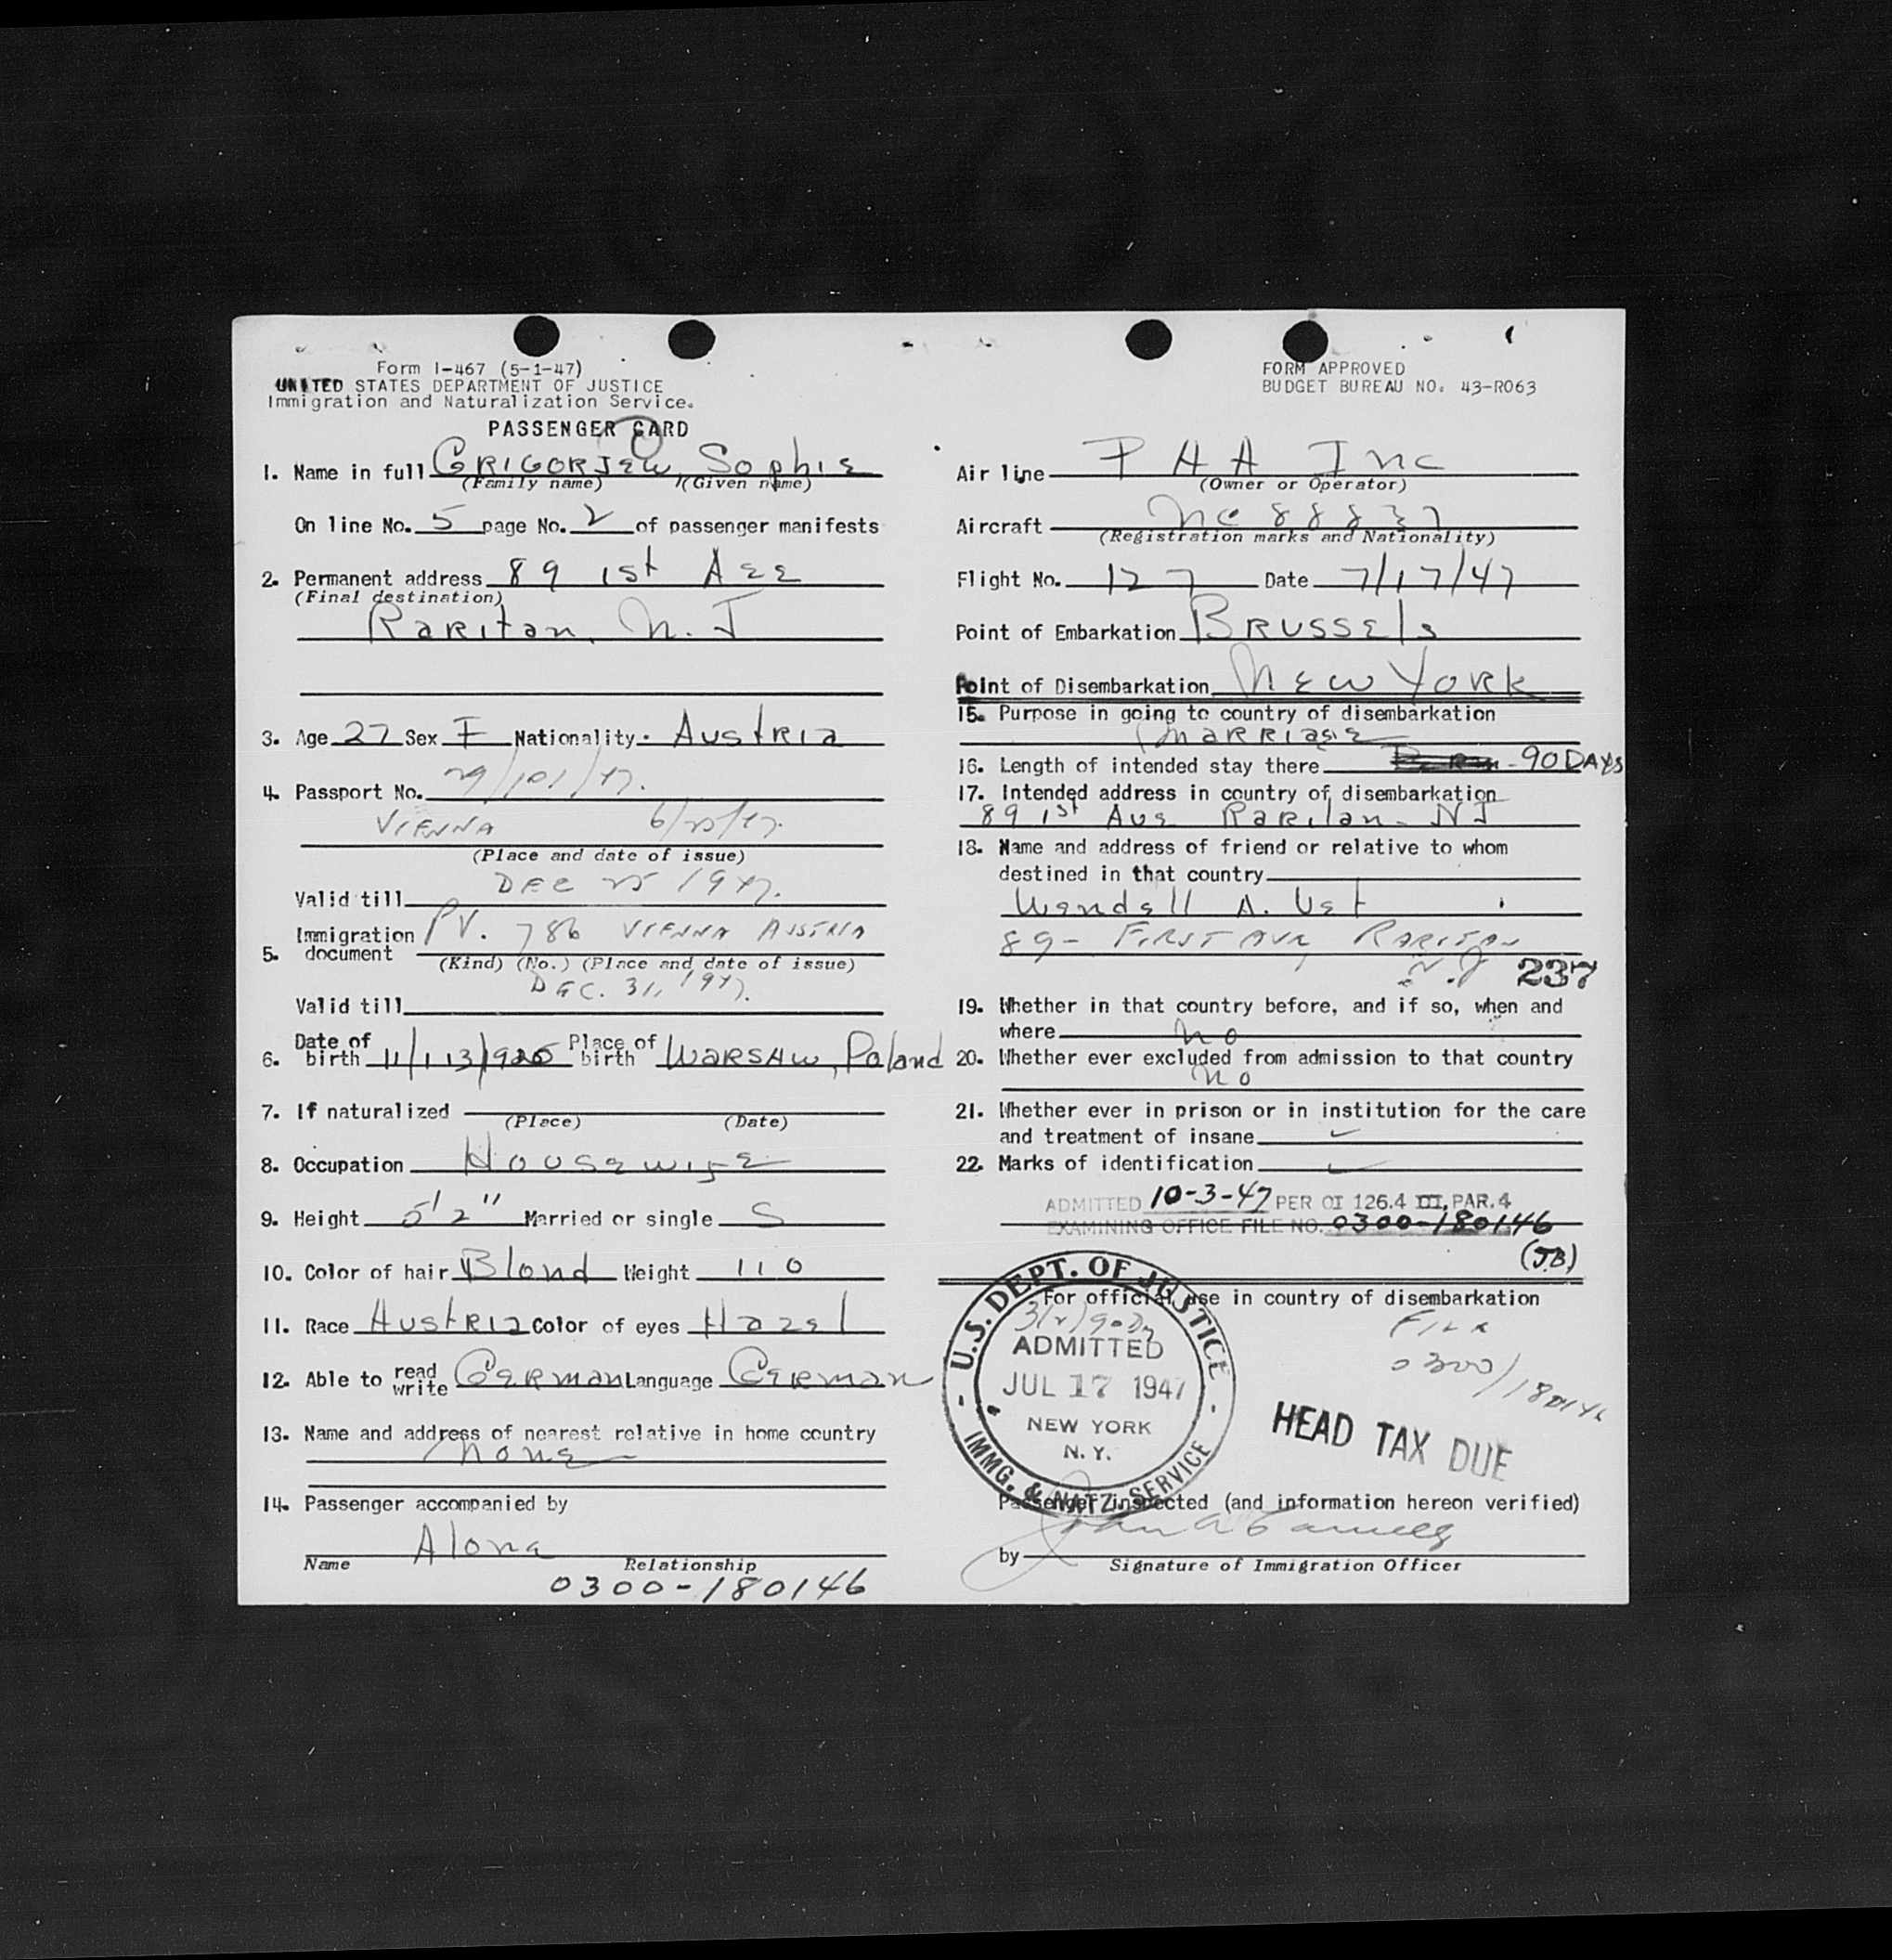 Form I-467 (5-1-47)
UNITED STATES DEPARTMENT OF JUSTICE
Immigration and Naturalization Service.
PASSENGER CARD
1. Name in full GRIGORJEW, Sophie
(Family name) (Given name)
On line No. 5 page No. 2 of passenger manifests
2. Permanent address 89 1st Aee
(Final destination)
Raritan, N.J
3. Age 27 Sex F Nationality Austria
4. Passport No. 29/101/47.
VIENNA 6/25/47.
(Place and date of issue)
Valid till DEC 25 1947.
5. Immigration document PV. 786 VIENNA AUSTRIA
(Kind) (No.) (Place and date of issue)
Valid till DEC. 31, 1947.
6. Date of birth 11/113/1920 Place of birth Warsaw, Poland
7. If naturalized
(Place) (Date)
8. Occupation Housewife
9. Height 5'2" Married or single S
10. Color of hair Blond Weight 110
11. Race Austria Color of eyes Hazel
12. Able to read write German Language German
13. Name and address of nearest relative in home country
None
14. Passenger accompanied by
Alone
Name Relationship
0300-180146
FORM APPROVED
BUDGET BUREAU NO. 43-R063
Air line PAA Inc
(Owner or Operator)
Aircraft NC 88837
(Registration marks and Nationality)
Flight No. 127 Date 7/17/47
Point of Embarkation Brussels
Point of Disembarkation New York
15. Purpose in going to country of disembarkation
Marriage
16. Length of intended stay there 90 DAYS
17. Intended address in country of disembarkation
89 1st Ave Raritan NJ
18. Name and address of friend or relative to whom
destined in that country
Wendell A. Vet
89 - FIRST AVE RARITAN
N.J 237
19. Whether in that country before, and if so, when and
where No
20. Whether ever excluded from admission to that country
No
21. Whether ever in prison or in institution for the care
and treatment of insane
22. Marks of identification
ADMITTED 10-3-47 PER OI 126.4 III, PAR. 4
EXAMINING OFFICE FILE NO. 0300-180146
(J.B)
For official use in country of disembarkation
U.S. DEPT. OF JUSTICE
3(2) 90 Dy
ADMITTED
JUL 17 1947
NEW YORK
N.Y.
IMMG. & NATZ. SERVICE
File
0300/180146
HEAD TAX DUE
Passenger inspected (and information hereon verified)
by
Signature of Immigration Officer